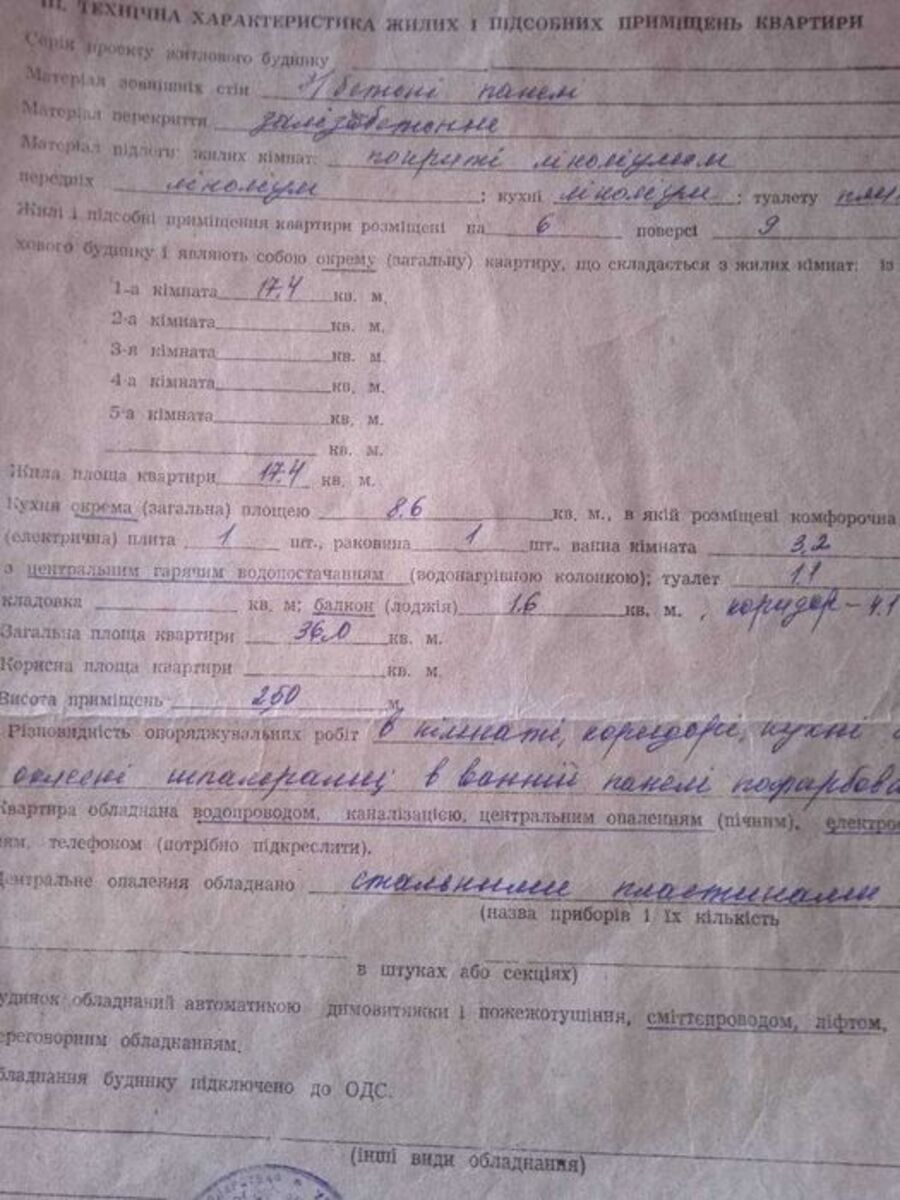 III. ТЕХНІЧНА ХАРАКТЕРИСТИКА ЖИЛИХ І ПІДСОБНИХ ПРИМІЩЕНЬ КВАРТИРИ
Серія проекту житлового будинку
Матеріал зовнішніх стін з/бетоні панелі
Матеріал перекриття залізобетонне
Матеріал підлоги: жилих кімнат: покриті ліноліумом
передніх ліноліум ; кухні ліноліум ; туалету
Жилі і підсобні приміщення квартири розміщені на 6 поверсі 9
хового будинку і являють собою окрему (загальну) квартиру, що складається з жилих кімнат: із
1-а кімната 17,4 кв. м.
2-а кімната кв. м.
3-я кімната кв. м.
4-а кімната кв. м.
5-а кімната кв. м.
кв. м.
Жила площа квартири 17.4 кв. м.
Кухня окрема (загальна) площею 8,6 кв. м., в якій розміщені комфорочна
(електрична) плита 1 шт., раковина 1 шт.. ванна кімната 3,2
з центральним гарячим водопостачанням (водонагрівною колонкою); туалет 1,1
кладовка кв. м; балкон (лоджія) 1.6 кв. м. , коридор - 4.1
Загальна площа квартири 36,0 кв. м.
Корисна площа квартири кв. м.
Висота приміщень 2,50 м.
Різновидність опоряджувальних робіт в кімнаті, коридорі, кухні
оклеєні шпалерами, в ванній панелі пофарбова
Квартира обладнана водопроводом, каналізацією, центральним опаленням (пічним), електроо
ням, телефоном (потрібно підкреслити).
Центральне опалення обладнано стальними пластинами
(назва приборів і їх кількість
в штуках або секціях)
удинок обладнаний автоматикою димовитяжки і пожежотушіння, сміттєпроводом, ліфтом,
ереговорним обладнанням.
бладнання будинку підключено до ОДС.
(інші види обладнання)